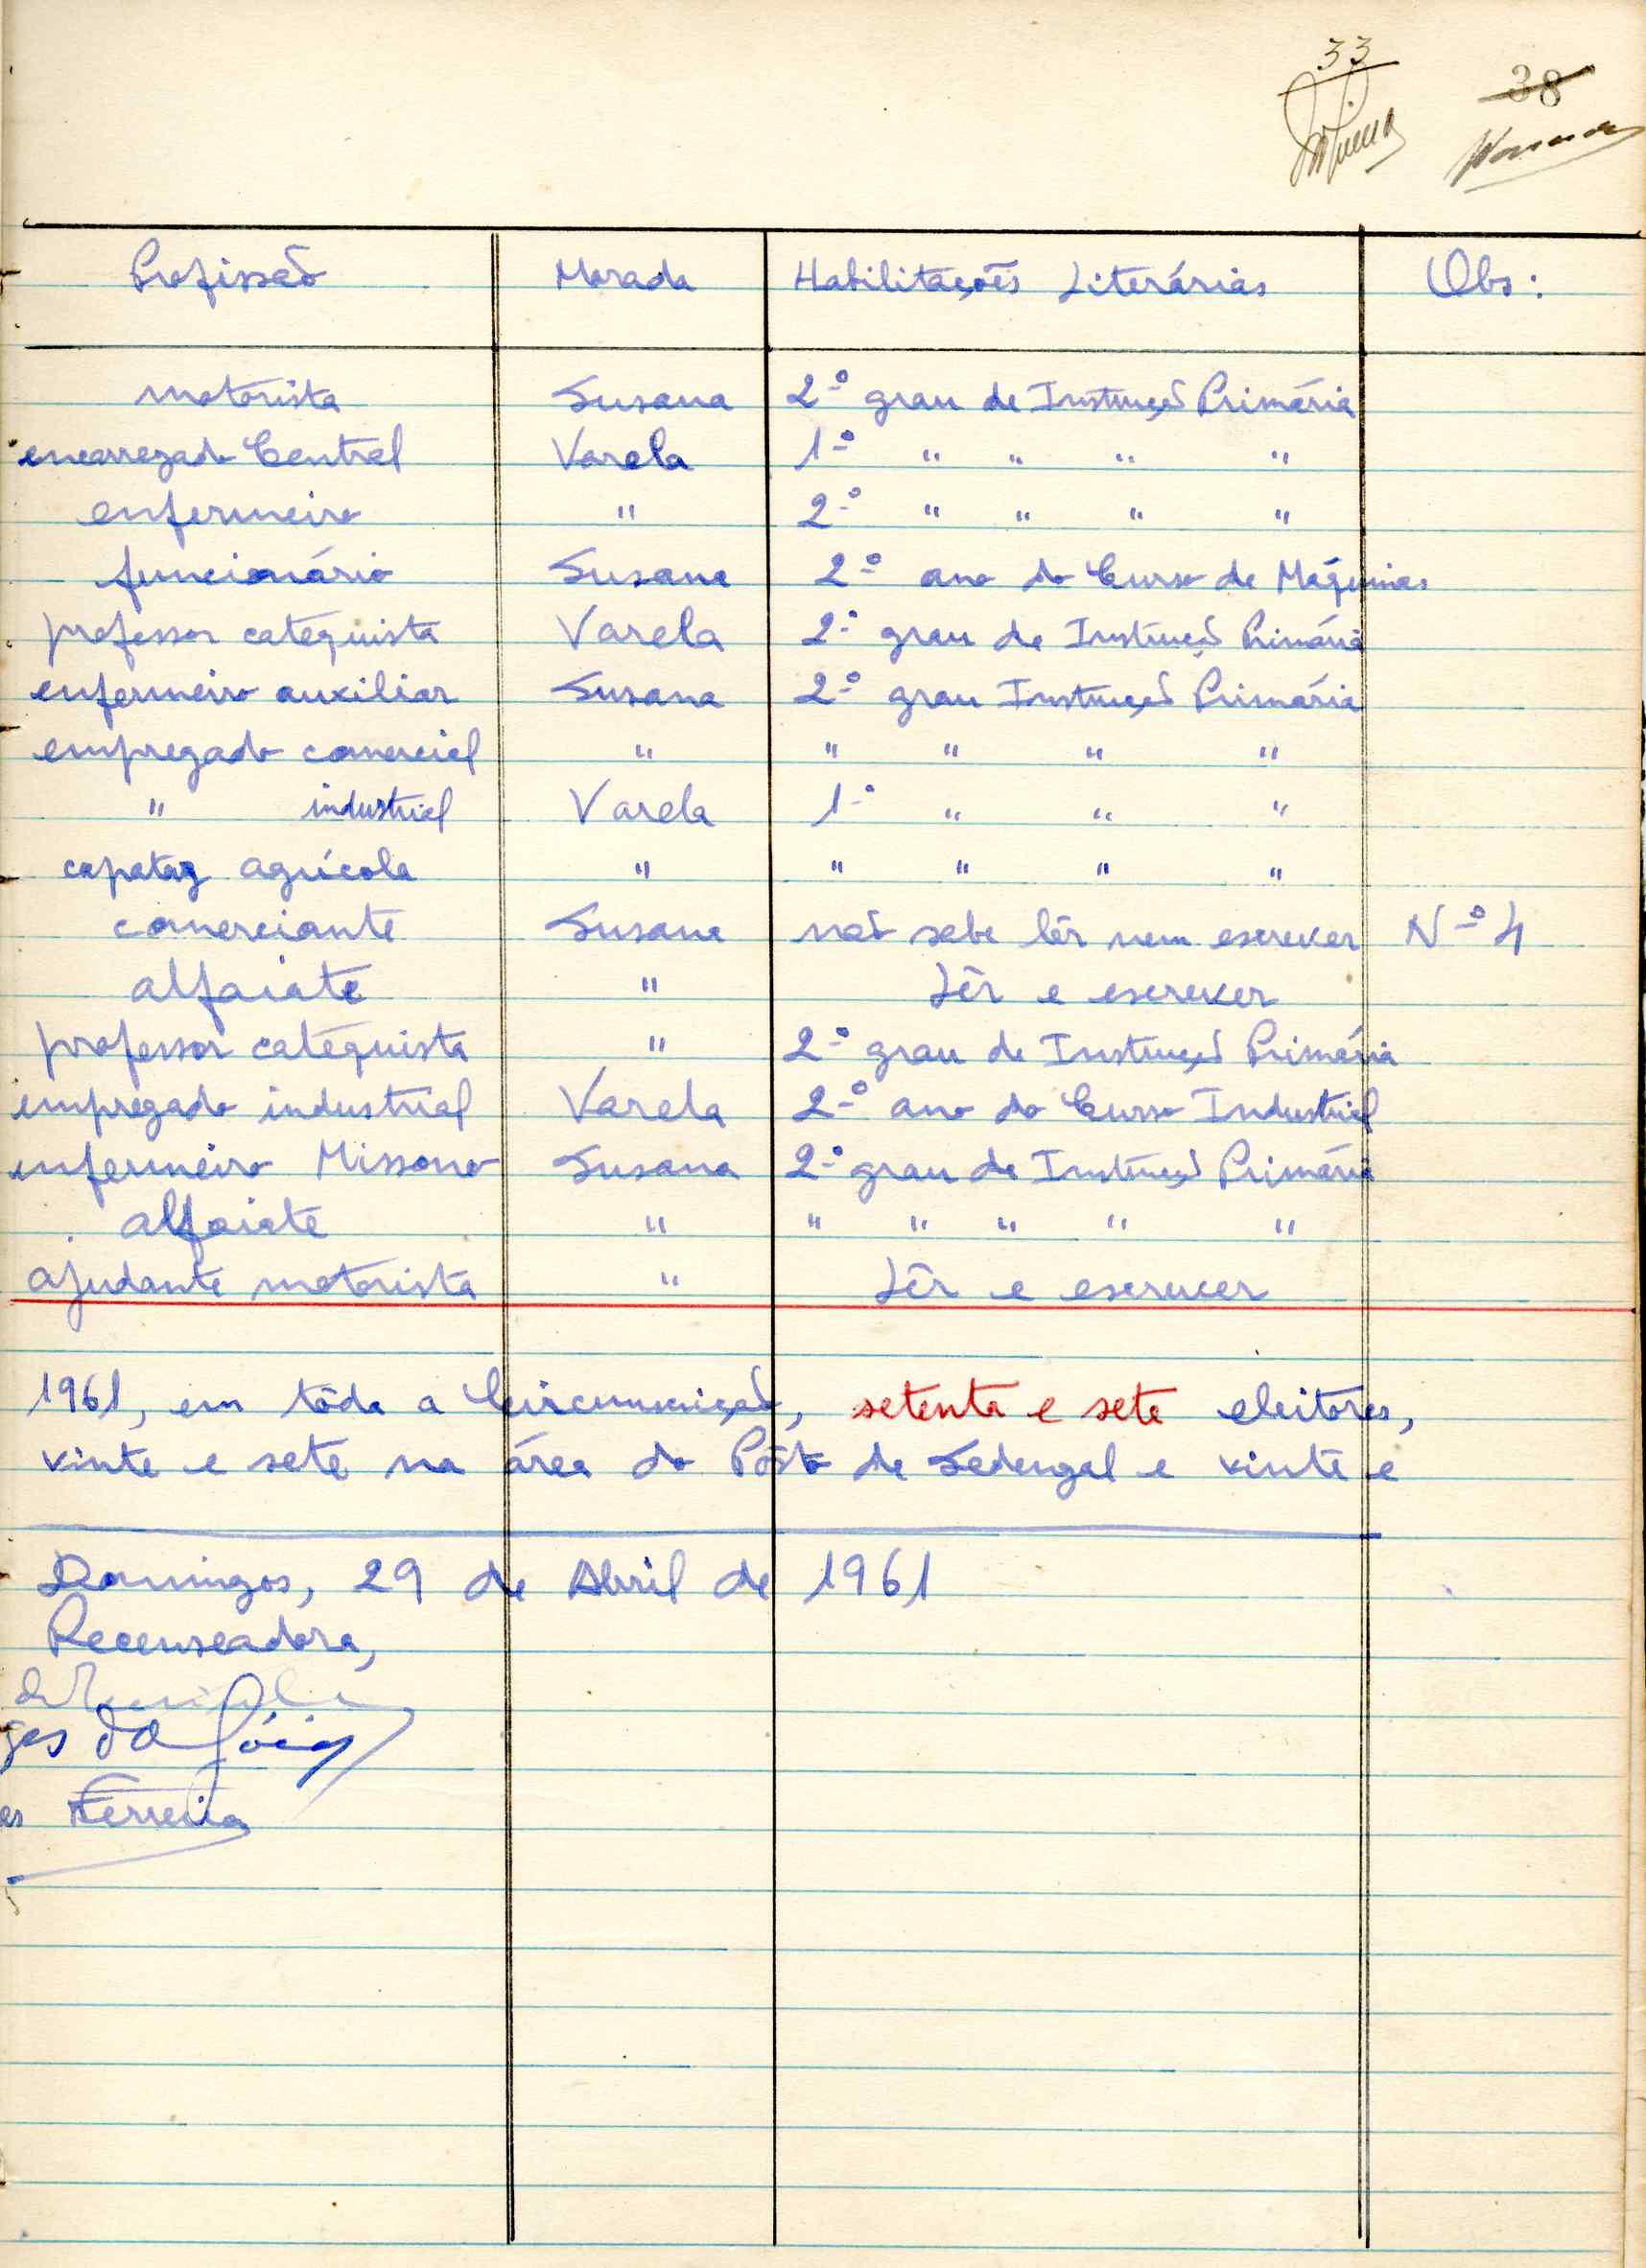 33
38
Profissão Morada Habilitações Literárias Obs:
motorista Susana 2º grau de Instrução Primária
encarregado Central Varela 1º " " " "
enfermeiro " 2º " " " "
funcionário Susana 2º ano do Curso de Máquinas
professor catequista Varela 2º grau de Instrução Primária
enfermeiro auxiliar Susana 2º grau Instrução Primária
empregado comercial " " " " "
" industrial Varela 1º " " "
capataz agrícola " " " " "
comerciante Susana não sabe lêr nem escrever Nº 4
alfaiate " Lêr e escrever
professor catequista " 2º grau de Instrução Primária
empregado industrial Varela 2º ano do Curso Industrial
enfermeiro Missono Susana 2º grau de Instrução Primária
alfaiate " " " " " "
ajudante motorista " Lêr e escrever
1961, em tôda a Circunscrição, setenta e sete eleitores,
vinte e sete na área do Pôsto de Sedengal e vinte e
Domingos, 29 de Abril de 1961
Recenseadora,
ges da Góia
es Ferreira